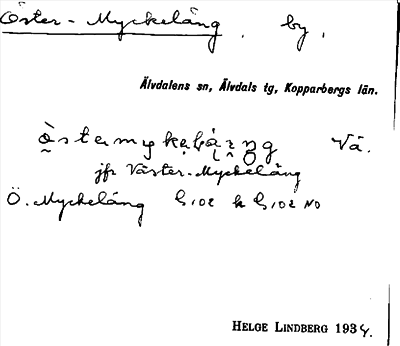 Öster-Myckelång, by,
Älvdalens sn, Älvdals tg, Kopparbergs län.
Vä.
jfr Väster-Myckelång
Ö. Myckeläng G102 h G102 NO
HELGE LINDBERG 1934.